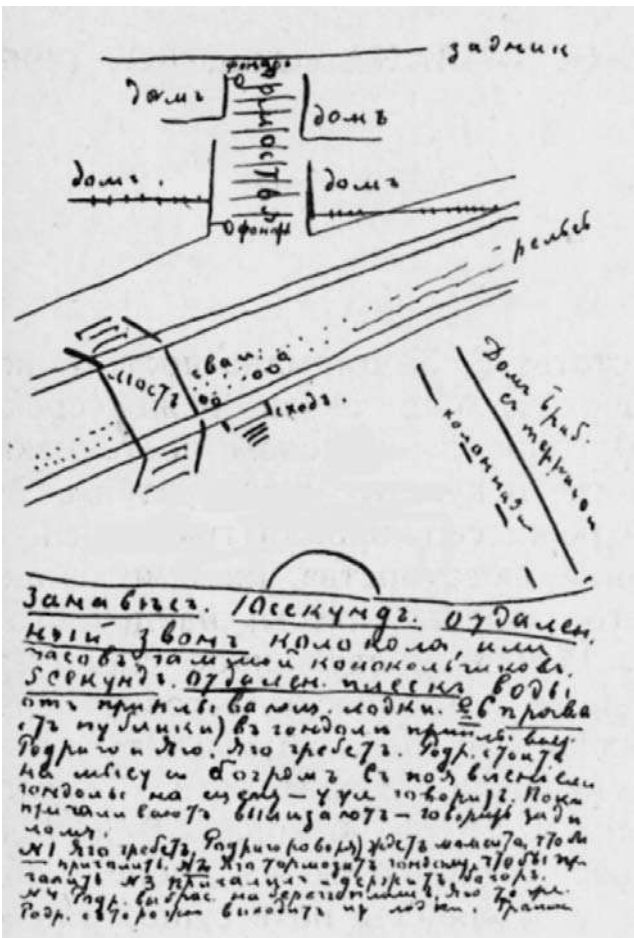 задник
фонарь
домъ
домъ
подмостья
домъ.
домъ
фонарь
рельеф
сваи
мостъ
сходъ.
Домъ Браб.
съ террасой
колоннада
Занавѣсъ. 10 секундъ. Отдален.
ный звонъ колокола, или
часовъ, гаммой колокольчиковъ.
5 секундъ. Отдален. плескъ воды
отъ приплывающ. лодки. Въ
публики) въ гондолѣ
Родриго и Яго. Яго гребетъ. Родр. стоитъ
на мысу съ багромъ. Съ появленіем
гондолы на сцену – уже говорятъ. Пока
причаливаютъ вылѣзаютъ – говорятъ
№1 Яго гребетъ, Родриго ждетъ момента, чтобы
причалить. №2 Яго тормозитъ гондолу, чтобы
чалить №3 причалил – держитъ багоръ.
№4 Родр. Яго то же.
Родр. выходитъ из лодки.